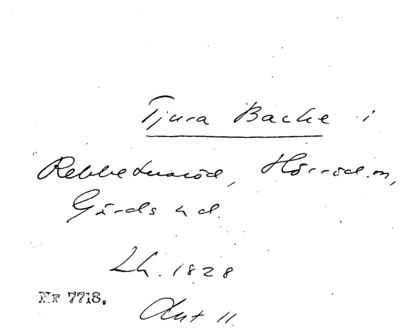 Tjura Backe i
Rebbetuaröd, Hörröd.m,
Gärds hd.
Lh. 1828
Nr 7718.
Ant 11